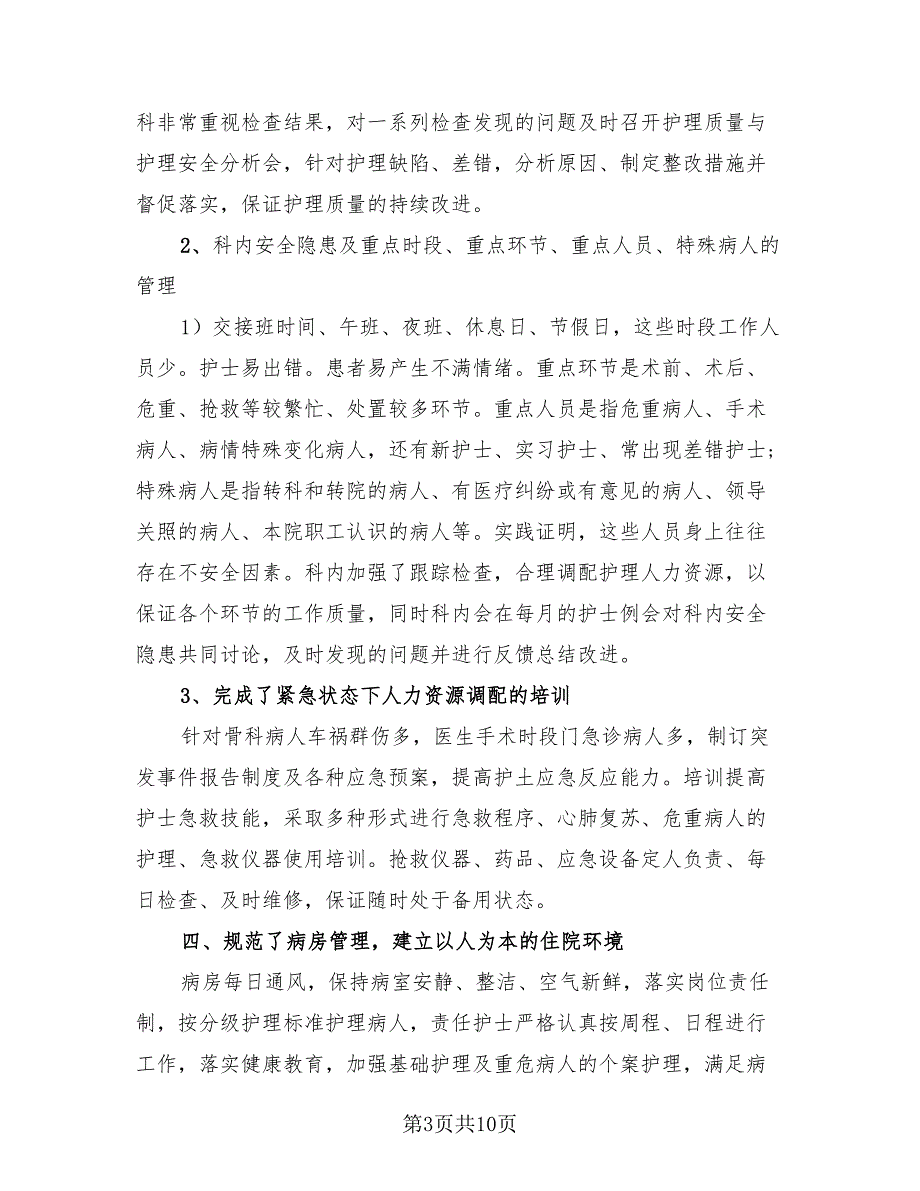 科非常重视检查结果，对一系列检查发现的问题及时召开护理质量与
护理安全分析会，针对护理缺陷、差错，分析原因、制定整改措施并
督促落实，保证护理质量的持续改进。
2、科内安全隐患及重点时段、重点环节、重点人员、特殊病人的
管理
1）交接班时间、午班、夜班、休息日、节假日，这些时段工作人
员少。护士易出错。患者易产生不满情绪。重点环节是术前、术后、
危重、抢救等较繁忙、处置较多环节。重点人员是指危重病人、手术
病人、病情特殊变化病人，还有新护士、实习护士、常出现差错护士;
特殊病人是指转科和转院的病人、有医疗纠纷或有意见的病人、领导
关照的病人、本院职工认识的病人等。实践证明，这些人员身上往往
存在不安全因素。科内加强了跟踪检查，合理调配护理人力资源，以
保证各个环节的工作质量，同时科内会在每月的护士例会对科内安全
隐患共同讨论，及时发现的问题并进行反馈总结改进。
3、完成了紧急状态下人力资源调配的培训
针对骨科病人车祸群伤多，医生手术时段门急诊病人多，制订突
发事件报告制度及各种应急预案，提高护土应急反应能力。培训提高
护士急救技能，采取多种形式进行急救程序、心肺复苏、危重病人的
护理、急救仪器使用培训。抢救仪器、药品、应急设备定人负责、每
日检查、及时维修，保证随时处于备用状态。
四、规范了病房管理，建立以人为本的住院环境
病房每日通风，保持病室安静、整洁、空气新鲜，落实岗位责任
制，按分级护理标准护理病人，责任护士严格认真按周程、日程进行
工作，落实健康教育，加强基础护理及重危病人的个案护理，满足病
第3页共10页